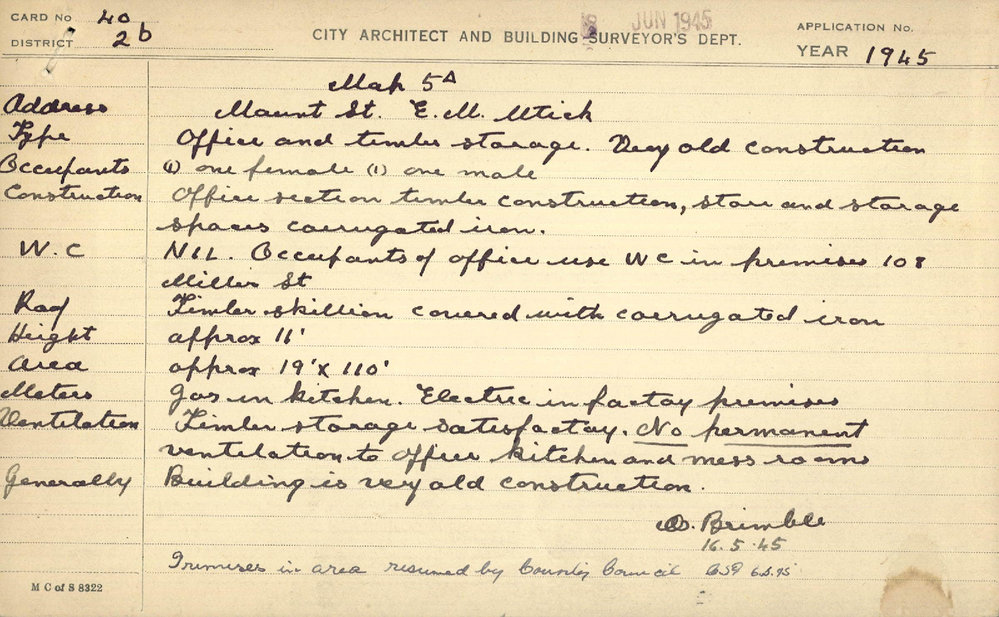 CARD No 40
DISTRICT 2b
CITY ARCHITECT AND BUILDING SURVEYOR'S DEPT.
JUN 1945
APPLICATION No.
YEAR 1945
Map 5A
Address Maunt St. E. M. Utick
Type Office and timber storage. Very old construction
Occupants (1) one female (1) one male
Construction Office section timber construction, store and storage
spaces corrugated iron.
W.C NIL. Occupants of office use WC in premises 108
Miller St
Roof Timber skillion covered with corrugated iron
Height approx 11'
Area approx 19' x 110'
Meters Gas in kitchen. Electric in factory premises
Ventilation Timber storage satisfactory. No permanent
ventilation to office kitchen and mess rooms
Generally Building is very old construction.
Brimble
16.5.45
Premises in area resumed by County Council
M C of S 8322